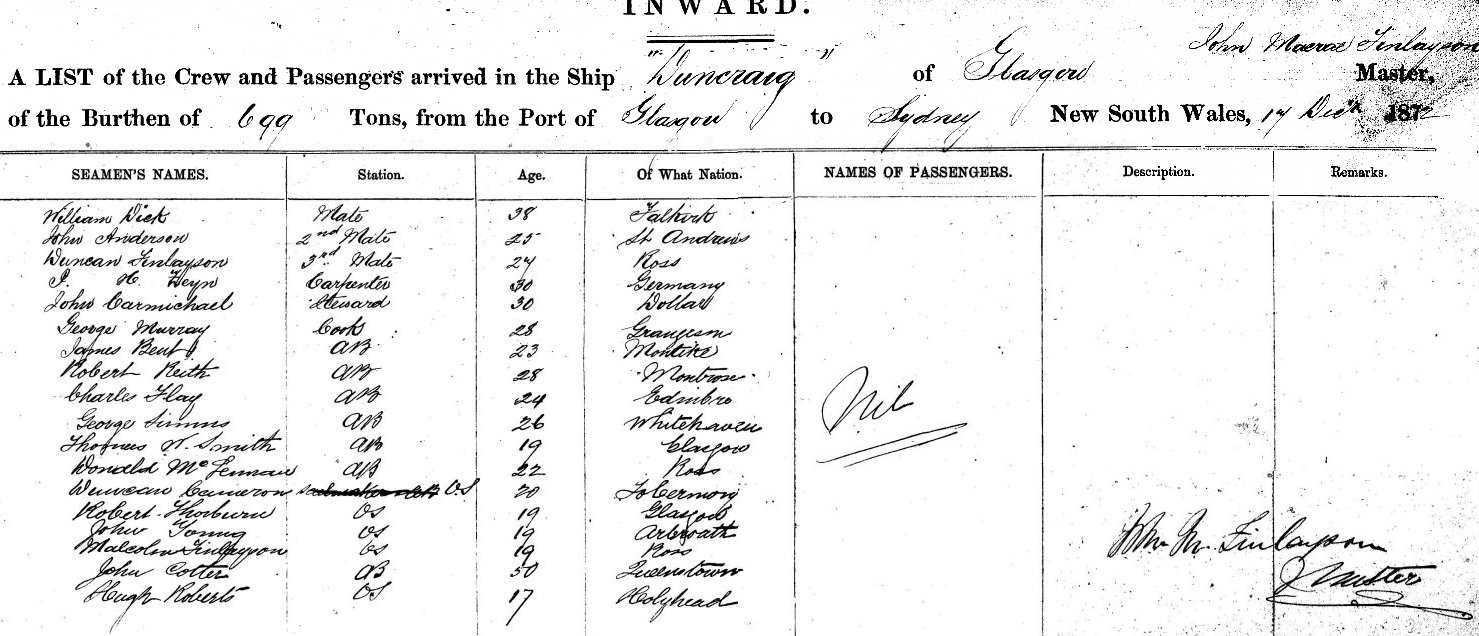 INWARD.
John Macrae Finlayson
A LIST of the Crew and Passengers arrived in the Ship "Duncraig" of Glasgow Master,
of the Burthen of 699 Tons, from the Port of Glasgow to Sydney New South Wales, 17 Decr 1872
SEAMEN'S NAMES. Station. Age. Of What Nation. NAMES OF PASSENGERS. Description. Remarks.
William Dick Mate 38 Falkirk
John Anderson 2nd Mate 25 St Andrews
Duncan Finlayson 3rd Mate 24 Ross
P. H. Heyn Carpenter 30 Germany
John Carmichael Steward 30 Dollar
George Murray Cook 28
James Bent AB 23
Robert Keith AB 28 Montrose
Charles Hay AB 24 Edinbro
George Simms AB 26 Whitehaven
Nil
Thomas W. Smith AB 19 Glasgow
Donald McLennan AB 22 Ross
Duncan Cameron OS 20 Tobermory
Robert Thorburn OS 19 Glasgow
John Young OS 19 Arbroath
Malcolm Finlayson OS 19 Ross
John M. Finlayson
John Cotter AB 50 Queenstown
Master
Hugh Roberts OS 17 Holyhead